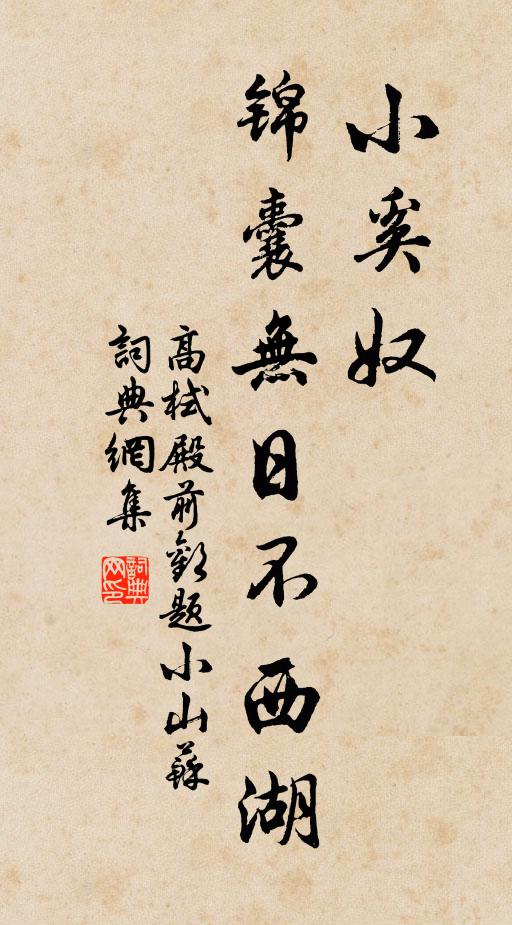 小奚奴
錦囊無日不西湖
高栻殿前歡題小山蘇
詞典網集
詞典网印